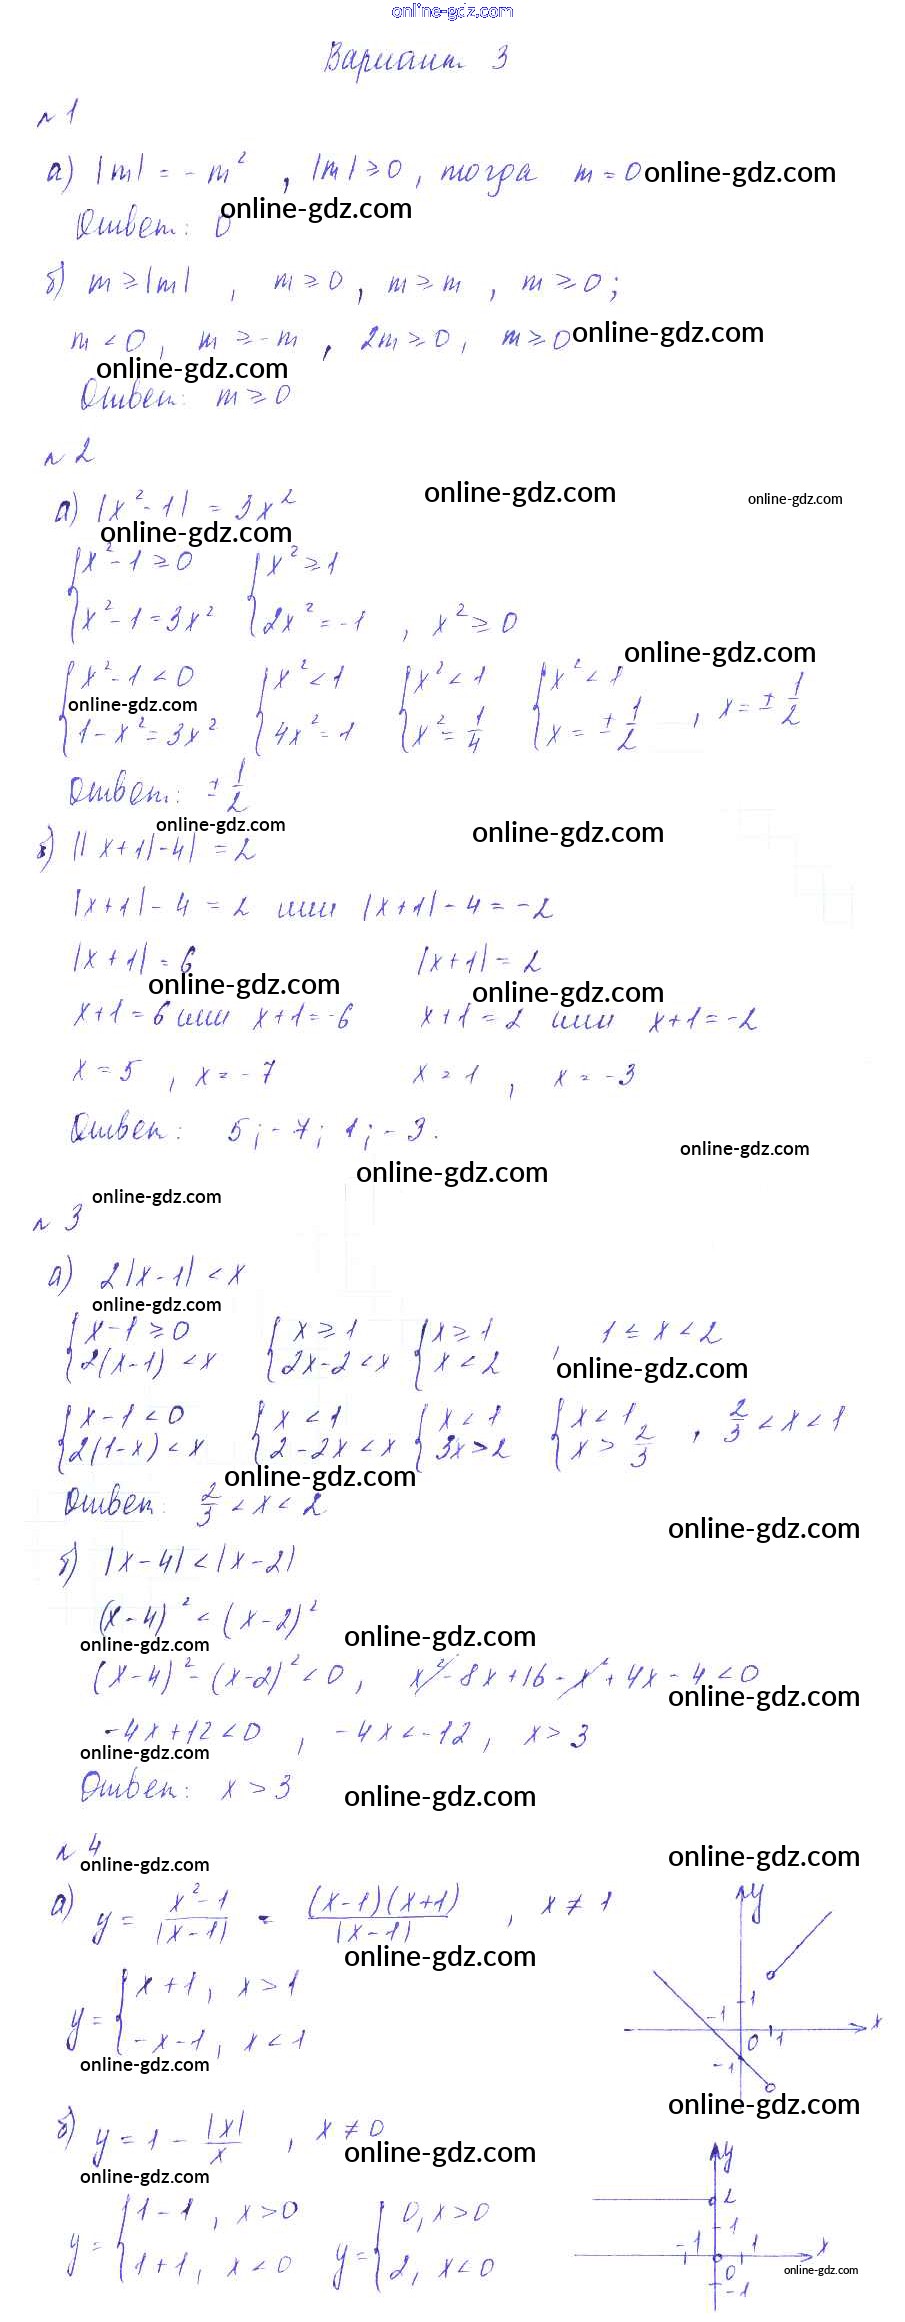 online-gdz.com
Вариант 3
№ 1
а) |m| = - m² , |m| ≥ 0 , тогда m = 0 online-gdz.com
online-gdz.com
Ответ: 0
б) m ≥ |m| , m ≥ 0 , m ≥ m , m ≥ 0 ;
m < 0 , m ≥ -m , 2m ≥ 0 , m ≥ 0 online-gdz.com
online-gdz.com
Ответ: m ≥ 0
№ 2
online-gdz.com online-gdz.com
а) |x² - 1| = 3x²
online-gdz.com
{ x² - 1 ≥ 0 { x² ≥ 1
{ x² - 1 = 3x² { 2x² = -1 , x² ≥ 0
online-gdz.com
{ x² - 1 < 0 { x² < 1 { x² < 1 { x² < 1
online-gdz.com
{ 1 - x² = 3x² { 4x² = 1 { x² = 1/4 { x = ± 1/2 , x = ± 1/2
Ответ: ± 1/2
online-gdz.com online-gdz.com
б) ||x+1| - 4| = 2
|x+1| - 4 = 2 или |x+1| - 4 = -2
|x+1| = 6 |x+1| = 2
online-gdz.com online-gdz.com
x+1 = 6 или x+1 = -6 x+1 = 2 или x+1 = -2
x = 5 , x = -7 x = 1 , x = -3
Ответ: 5 ; -7 ; 1 ; -3 .
online-gdz.com
online-gdz.com
online-gdz.com
№ 3
а) 2|x-1| < x
online-gdz.com
{ x-1 ≥ 0 { x ≥ 1 { x ≥ 1 , 1 ≤ x < 2
{ 2(x-1) < x { 2x-2 < x { x < 2
online-gdz.com
{ x-1 < 0 { x < 1 { x < 1 { x < 1 , 2/3 < x < 1
{ 2(1-x) < x { 2-2x < x { 3x > 2 { x > 2/3
online-gdz.com
Ответ: 2/3 < x < 2
online-gdz.com
б) |x-4| < |x-2|
(x-4)² < (x-2)²
online-gdz.com online-gdz.com
(x-4)² - (x-2)² < 0 , x² - 8x + 16 - x² + 4x - 4 < 0
online-gdz.com
-4x + 12 < 0 , -4x < -12 , x > 3
online-gdz.com
Ответ: x > 3
online-gdz.com
№ 4
online-gdz.com online-gdz.com
а) y = x²-1 / |x-1| = (x-1)(x+1) / |x-1| , x ≠ 1
online-gdz.com
y = { x+1 , x > 1
{ -x-1 , x < 1
y
1
-1 0 1 x
-1
online-gdz.com
online-gdz.com
б) y = 1 - |x| / x , x ≠ 0
online-gdz.com
online-gdz.com
y = { 1-1 , x > 0 y = { 0 , x > 0
{ 1+1 , x < 0 { 2 , x < 0
y
2
1
-1 0 1 x
-1
online-gdz.com